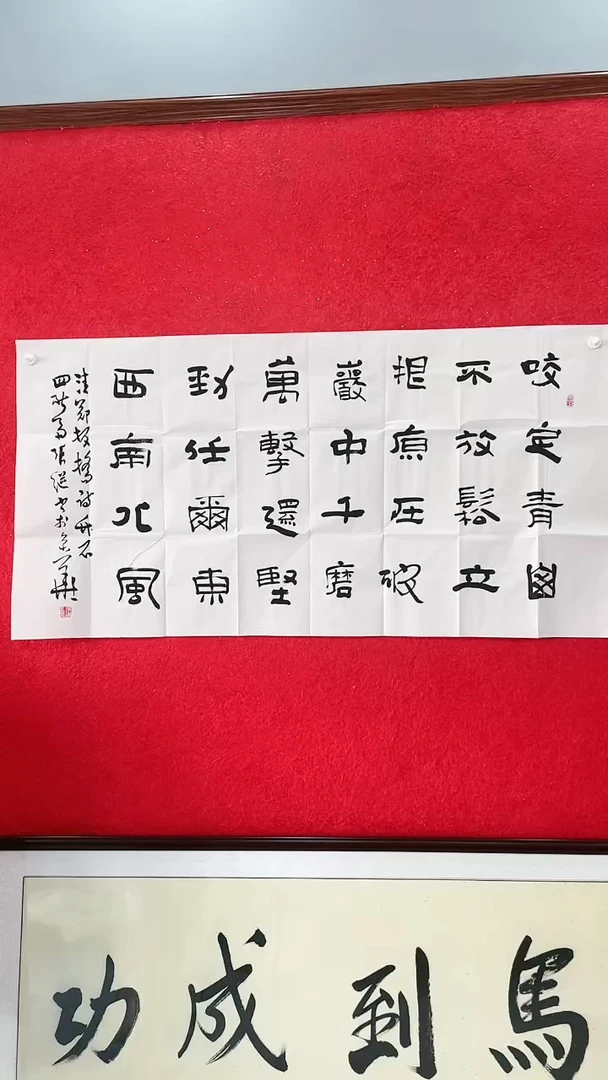 咬定青
不放鬆立
根原在破
巖中千磨
萬擊還堅
勁任爾東
西南北風
清鄭板橋詩竹石
書於京
馬到成功